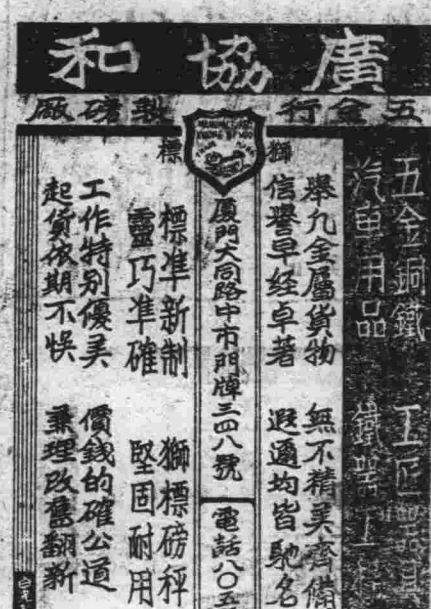 廣協和
五金行
製磅廠
獅標
五金銅鐵 工匠器具
汽車用品 鐵器工程
舉凡金屬貨物 無不精美齊備
信譽早経卓著 遐邇均皆馳名
厦門大同路中市門牌三四八號
電話八〇五
標准新制 獅標磅秤
靈巧准確 堅固耐用
工作特别優美 價錢的確公道
起貨依期不悞 兼理改舊翻新